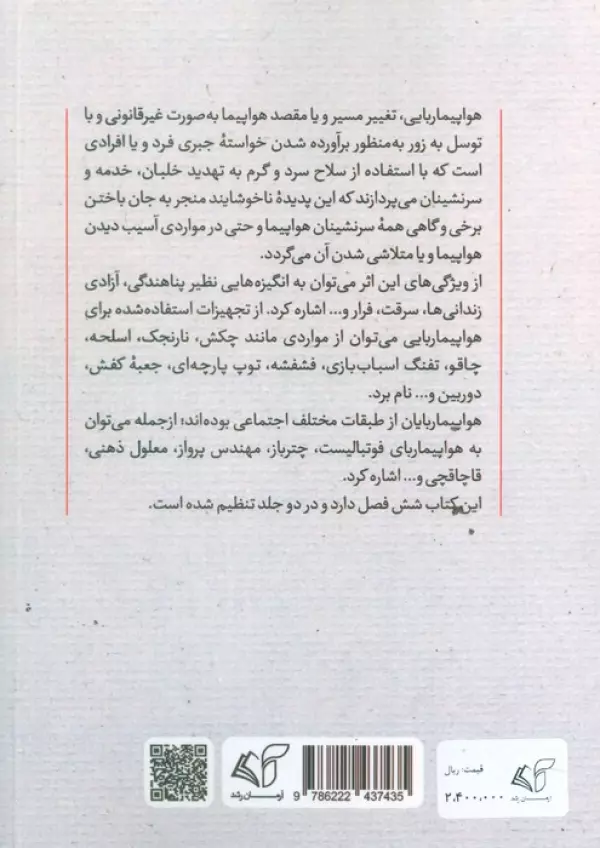 هواپیماربایی، تغییر مسیر و یا مقصد هواپیما به‌صورت غیرقانونی و با
توسل به زور به‌منظور برآورده شدن خواستهٔ جبری فرد و یا افرادی
است که با استفاده از سلاح سرد و گرم به تهدید خلبان، خدمه و
سرنشینان می‌پردازند که این پدیدهٔ ناخوشایند منجر به جان باختن
برخی و گاهی همهٔ سرنشینان هواپیما و حتی در مواردی آسیب دیدن
هواپیما و یا متلاشی شدن آن می‌گردد.
از ویژگی‌های این اثر می‌توان به انگیزه‌هایی نظیر پناهندگی، آزادی
زندانی‌ها، سرقت، فرار و... اشاره کرد. از تجهیزات استفاده‌شده برای
هواپیماربایی می‌توان از مواردی مانند چکش، نارنجک، اسلحه،
چاقو، تفنگ اسباب‌بازی، فشفشه، توپ پارچه‌ای، جعبهٔ کفش،
دوربین و... نام برد.
هواپیماربایان از طبقات مختلف اجتماعی بوده‌اند؛ ازجمله می‌توان
به هواپیماربای فوتبالیست، چترباز، مهندس پرواز، معلول ذهنی،
قاچاقچی و... اشاره کرد.
این کتاب شش فصل دارد و در دو جلد تنظیم شده است.
آرمان رشد
9 786222 437435
قیمت: ریال
۲،۴۰۰،۰۰۰
آرمان رشد